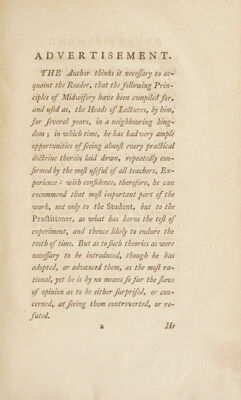 ADVERTISEMENT.
THE Author thinks it neceſſary to ac-
quaint the Reader, that the following Prin-
ciples of Midwifery have been compiled for,
and uſed as, the Heads of Lectures, by him,
for ſeveral years, in a neighbouring king-
dom; in which time, he has had very ample
opportunities of ſeeing almoſt every practical
doctrine therein laid down, repeatedly con-
firmed by the moſt uſeful of all teachers, Ex-
perience: with confidence, therefore, he can
recommend that moſt important part of the
work, not only to the Student, but to the
Practitioner, as what has borne the teſt of
experiment, and thence likely to endure the
tooth of time. But as to ſuch theories as were
neceſſary to be introduced, though he has
adopted, or advanced them, as the moſt ra-
tional, yet he is by no means ſo far the ſlave
of opinion as to be either ſurpriſed, or con-
cerned, at ſeeing them controverted, or re-
futed.
2 He